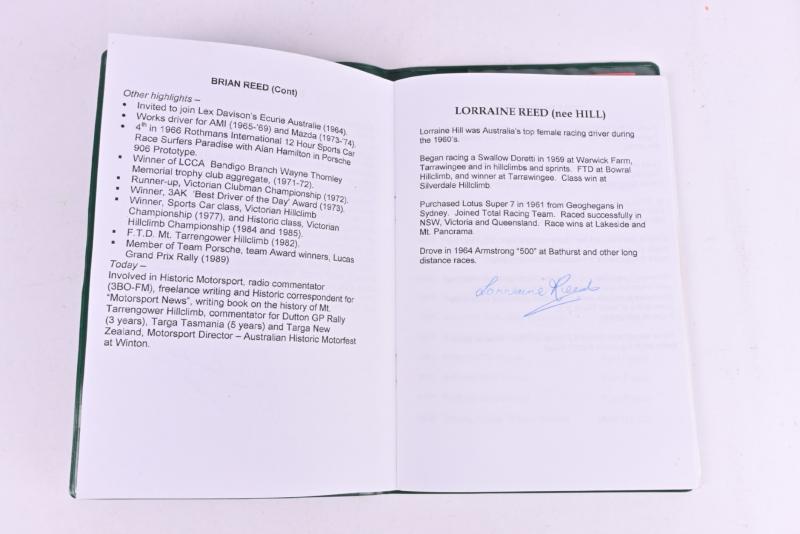 BRIAN REED (Cont)
Other highlights –
• Invited to join Lex Davison's Ecurie Australie (1964).
• Works driver for AMI (1965-'69) and Mazda (1973-'74).
• 4th in 1966 Rothmans International 12 Hour Sports Car
Race Surfers Paradise with Alan Hamilton in Porsche
906 Prototype.
• Winner of LCCA Bendigo Branch Wayne Thomley
Memorial trophy club aggregate, (1971-72).
• Runner-up, Victorian Clubman Championship (1972).
• Winner, 3AK 'Best Driver of the Day' Award (1973).
• Winner, Sports Car class, Victorian Hillclimb
Championship (1977), and Historic class, Victorian
Hillclimb Championship (1984 and 1985).
• F.T.D. Mt. Tarrengower Hillclimb (1982).
• Member of Team Porsche, team Award winners, Lucas
Grand Prix Rally (1989)
Today –
Involved in Historic Motorsport, radio commentator
(3BO-FM), freelance writing and Historic correspondent for
"Motorsport News", writing book on the history of Mt.
Tarrengower Hillclimb, commentator for Dutton GP Rally
(3 years), Targa Tasmania (5 years) and Targa New
Zealand, Motorsport Director – Australian Historic Motorfest
at Winton.
LORRAINE REED (nee HILL)
Lorraine Hill was Australia's top female racing driver during
the 1960's.
Began racing a Swallow Doretti in 1959 at Warwick Farm,
Tarrawingee and in hillclimbs and sprints. FTD at Bowral
Hillclimb, and winner at Tarrawingee. Class win at
Silverdale Hillclimb.
Purchased Lotus Super 7 in 1961 from Geoghegans in
Sydney. Joined Total Racing Team. Raced successfully in
NSW, Victoria and Queensland. Race wins at Lakeside and
Mt. Panorama.
Drove in 1964 Armstrong "500" at Bathurst and other long
distance races.
Lorraine Reed